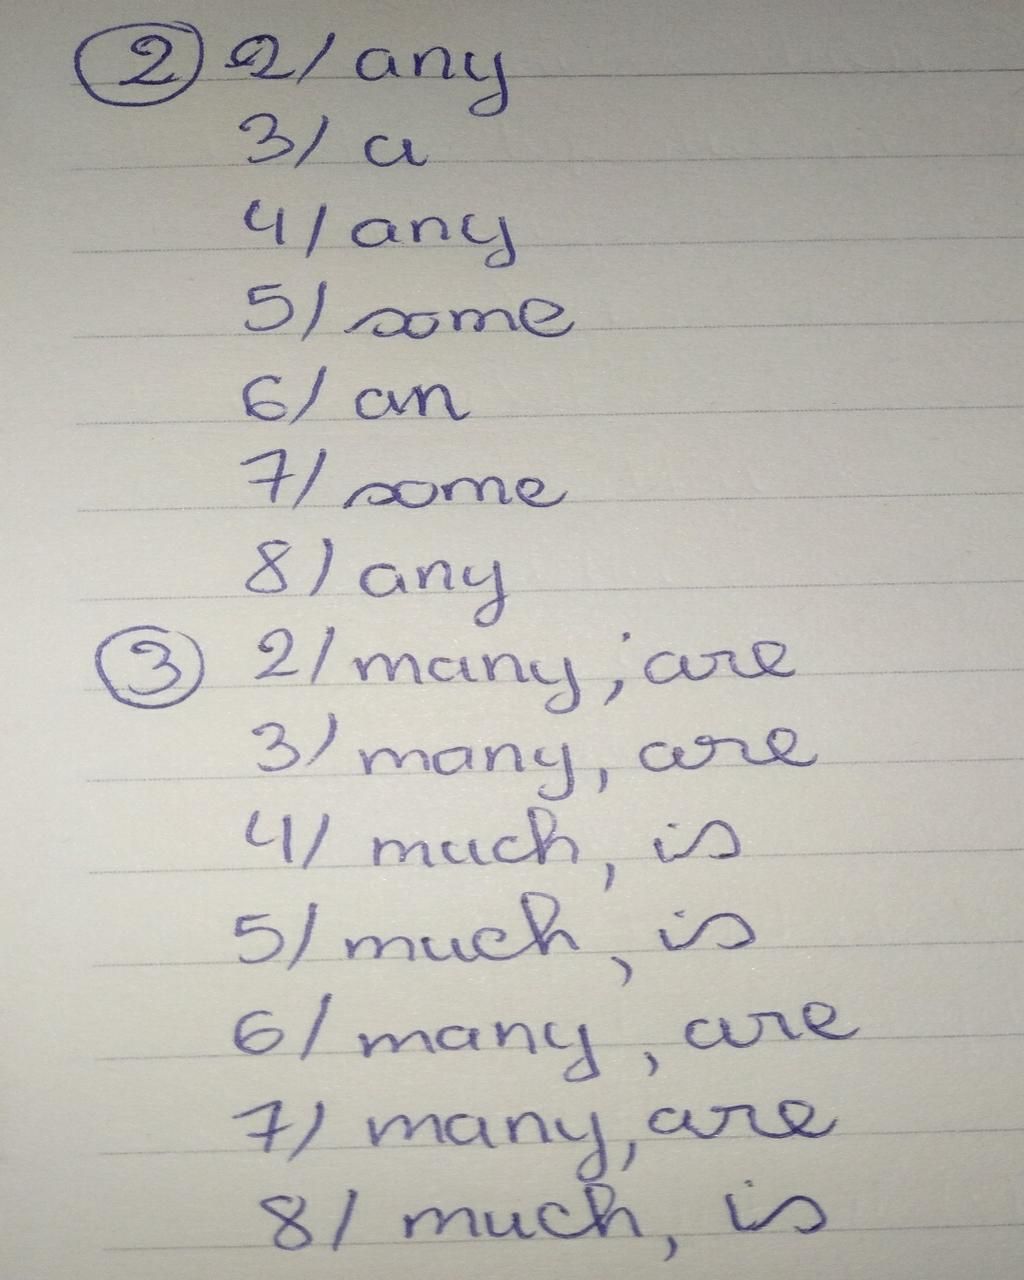 2 2/ any
3/ a
4/ any
5/ some
6/ an
7/ some
8/ any
3 2/ many; are
3/ many, are
4/ much, is
5/ much, is
6/ many, are
7/ many, are
8/ much, is